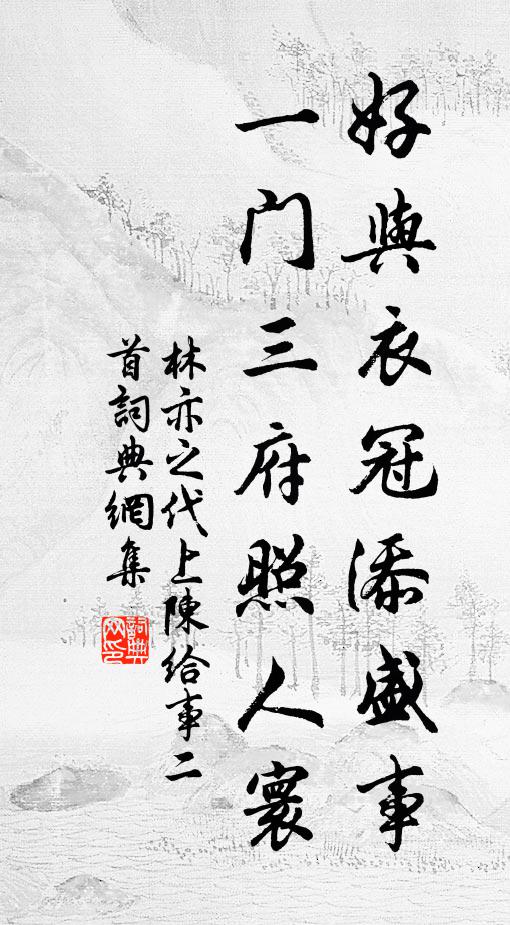 好與衣冠添盛事
一门三府照人寰
林亦之代上陳给事二
首詞典網集